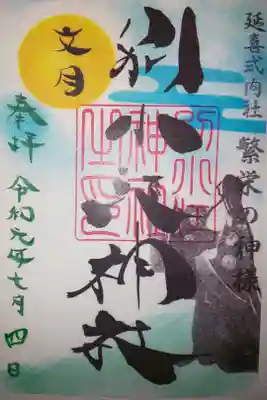 延喜式内社 繁栄の神様
別小江神社
文月
奉拝 令和元年七月四日